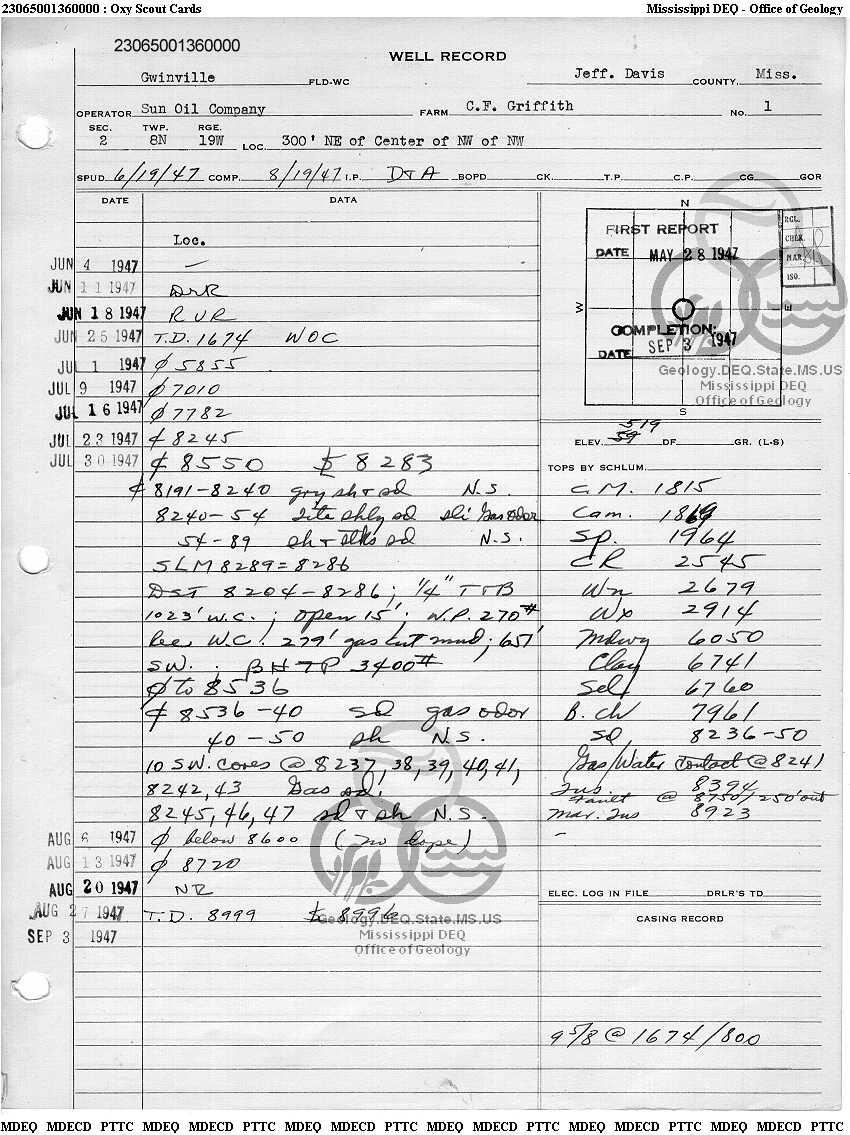 23065001360000 : Oxy Scout Cards Mississippi DEQ - Office of Geology
23065001360000
WELL RECORD
Gwinville FLD-WC Jeff. Davis COUNTY, Miss.
OPERATOR Sun Oil Company FARM C.F. Griffith No. 1
SEC. TWP. RGE.
2 8N 19W LOC. 300' NE of Center of NW of NW
SPUD 6/19/47 COMP. 8/19/47 I.P. D+A BOPD CK. T.P. C.P. CG. GOR
DATE DATA
Loc.
JUN 4 1947 —
JUN 11 1947 DrR
JUN 18 1947 RUR
JUN 25 1947 T.D. 1674 WOC
JUL 1 1947 ₵ 5855
JUL 9 1947 ₵ 7010
JUL 16 1947 ₵ 7782
JUL 23 1947 ₵ 8245
JUL 30 1947 ₵ 8550 8283
₵ 8191-8240 gry sh + sd N.S.
8240-54 Tite shly sd sli Gas odor
54-89 sh + stks sd N.S.
SLM 8289 = 8286
DST 8204-8286; "1/4" TTB
1023' W.C.; open 15'; W.P. 270#
Rec W.C. 279' gas cut mud; 651'
SW. ; BHFP 3400#
₵ to 8536
₵ 8536-40 sd gas odor
40-50 sh N.S.
10 S.W. Cores @ 8237, 38, 39, 40, 41,
8242, 43 Gas sd.
8245, 46, 47 sd + sh N.S.
AUG 6 1947 ₵ below 8600 (no dope)
AUG 13 1947 ₵ 8720
AUG 20 1947 NR
AUG 27 1947 T.D. 8999 8996
SEP 3 1947
N
FIRST REPORT
DATE MAY 28 1947
RGL.
CHER.
MAR.
ISO.
W E
COMPLETION:
DATE SEP 3 1947
S
Geology.DEQ.State.MS.US
Mississippi DEQ
Office of Geology
519
ELEV. 59 DF GR. (L-S)
TOPS BY SCHLUM.
G.M. 1815
Cam. 1869
Sp. 1964
CR 2545
Wn 2679
Wx 2914
Mdwy 6050
Clay 6741
Sel 6760
B. Ch 7961
Sd 8236-50
Gas/Water Contact @ 8241
Tus 8394
Fault @ 8750/250' out
Mar. Tus 8923
—
ELEC. LOG IN FILE DRLR'S TD
CASING RECORD
9 5/8 @ 1674/800
Geology.DEQ.State.MS.US
Mississippi DEQ
Office of Geology
MDEQ MDECD PTTC MDEQ MDECD PTTC MDEQ MDECD PTTC MDEQ MDECD PTTC MDEQ MDECD PTTC MDEQ MDECD PTTC